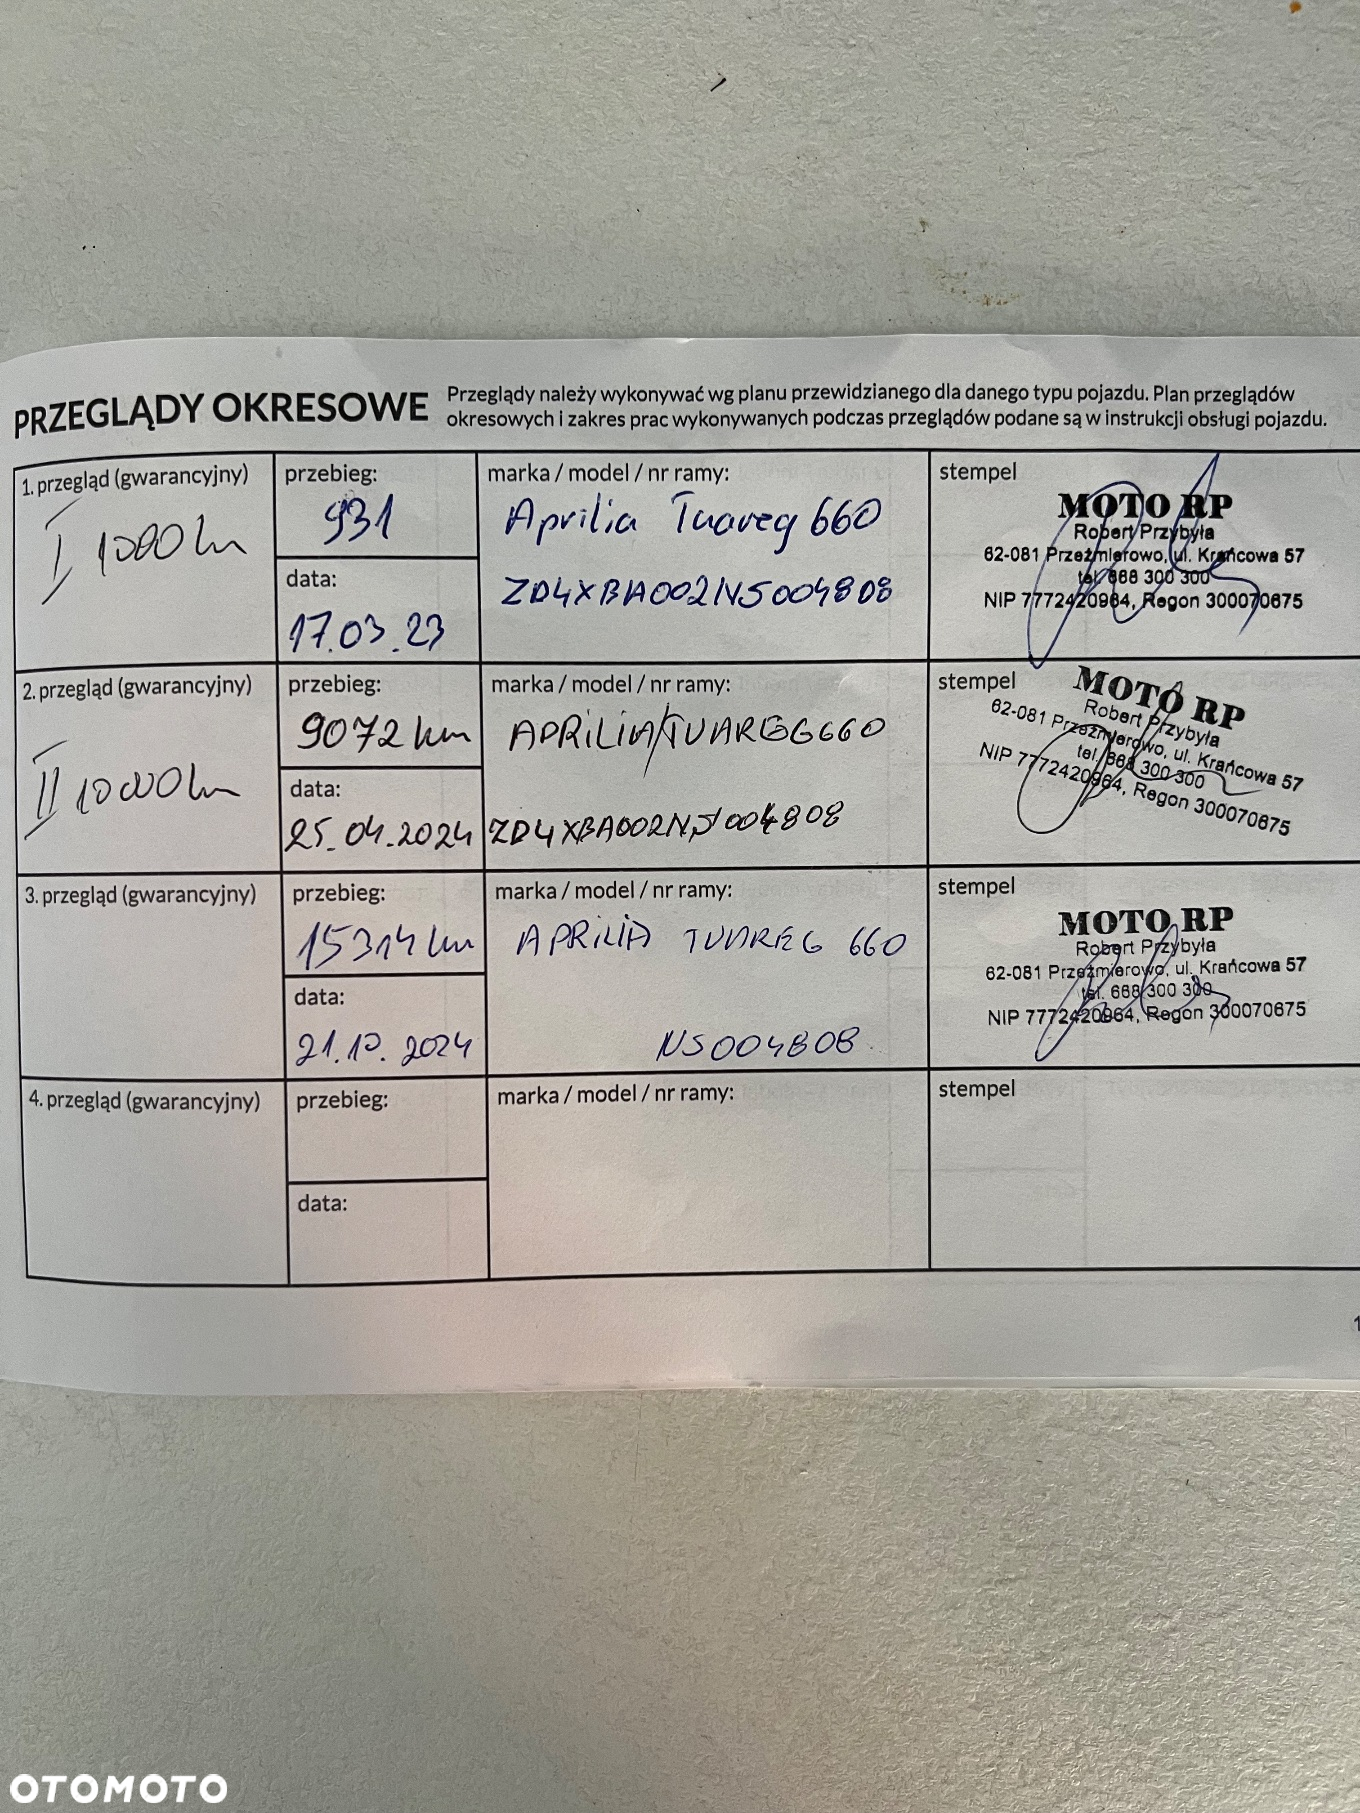 PRZEGLĄDY OKRESOWE
Przeglądy należy wykonywać wg planu przewidzianego dla danego typu pojazdu. Plan przeglądów
okresowych i zakres prac wykonywanych podczas przeglądów podane są w instrukcji obsługi pojazdu.
1. przegląd (gwarancyjny)
I 1000 km
przebieg:
931
data:
17.03.23
marka / model / nr ramy:
Aprilia Tuareg 660
ZD4XBA002NS004808
stempel
MOTO RP
Robert Przybyła
62-081 Przeźmierowo, ul. Krańcowa 57
tel. 668 300 300
NIP 7772420964, Regon 300070675
2. przegląd (gwarancyjny)
II 10000 km
przebieg:
9072 km
data:
25.04.2024
marka / model / nr ramy:
APRILIA/TUAREG 660
ZD4XBA002NS004808
stempel
MOTO RP
Robert Przybyła
62-081 Przeźmierowo, ul. Krańcowa 57
tel. 668 300 300
NIP 7772420964, Regon 300070675
3. przegląd (gwarancyjny)
przebieg:
15314 km
data:
21.10.2024
marka / model / nr ramy:
APRILIA TUAREG 660
NS004808
stempel
MOTO RP
Robert Przybyła
62-081 Przeźmierowo, ul. Krańcowa 57
tel. 668 300 300
NIP 7772420964, Regon 300070675
4. przegląd (gwarancyjny)
przebieg:
data:
marka / model / nr ramy:
stempel
1
OTOMOTO